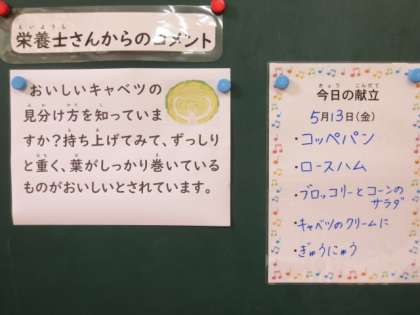 栄養士さんからのコメント
おいしいキャベツの
見分け方を知っていま
すか？持ち上げてみて、ずっしり
と重く、葉がしっかり巻いている
ものがおいしいとされています。
今日の献立
5月13日(金)
・コッペパン
・ロースハム
・ブロッコリーとコーンの
サラダ
・キャベツのクリームに
・ぎゅうにゅう